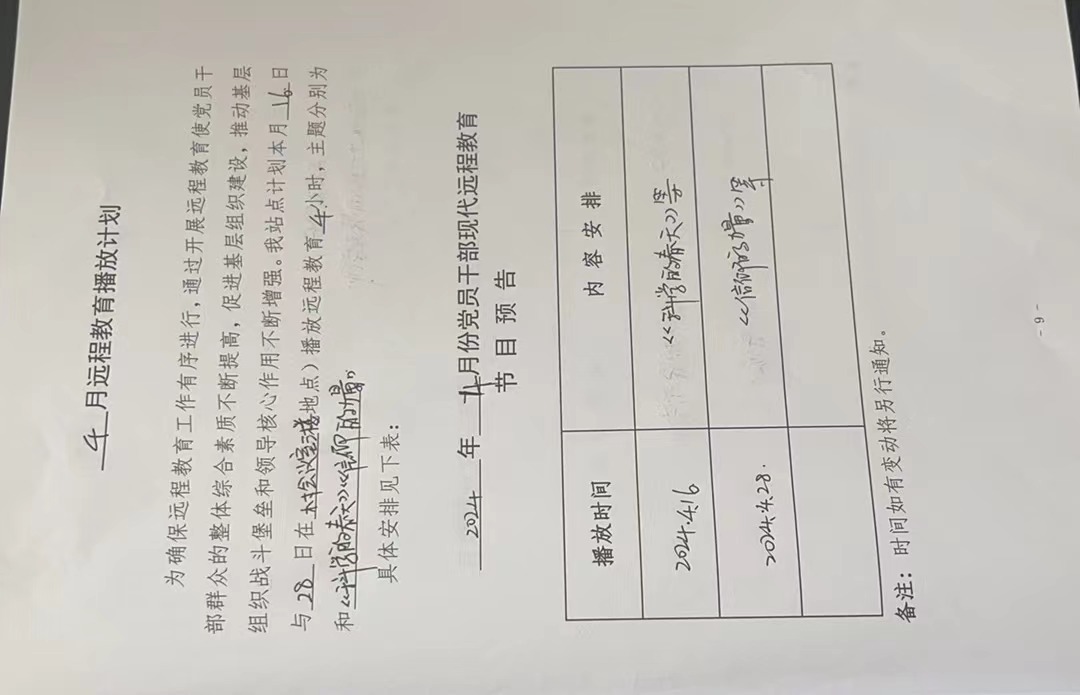 4月远程教育播放计划
为确保远程教育工作有序进行，通过开展远程教育使党员干
部群众的整体综合素质不断提高，促进基层组织建设，推动基层
组织战斗堡垒和领导核心作用不断增强。我站点计划本月16日
与28日在村会议室（地点）播放远程教育4小时，主题分别为
和《科学的春天》《信仰的力量》
具体安排见下表：
2024年4月份党员干部现代远程教育
节目预告
播放时间 内容安排
2024.4.16 《科学的春天》等
2024.4.28. 《信仰的力量》等
备注：时间如有变动将另行通知。
- 9 -